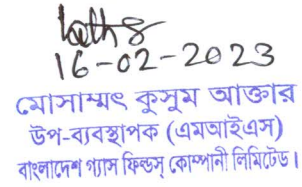 16-02-2023
মোসাম্মৎ কুসুম আক্তার
উপ-ব্যবস্থাপক (এমআইএস)
বাংলাদেশ গ্যাস ফিল্ডস্ কোম্পানী লিমিটেড।